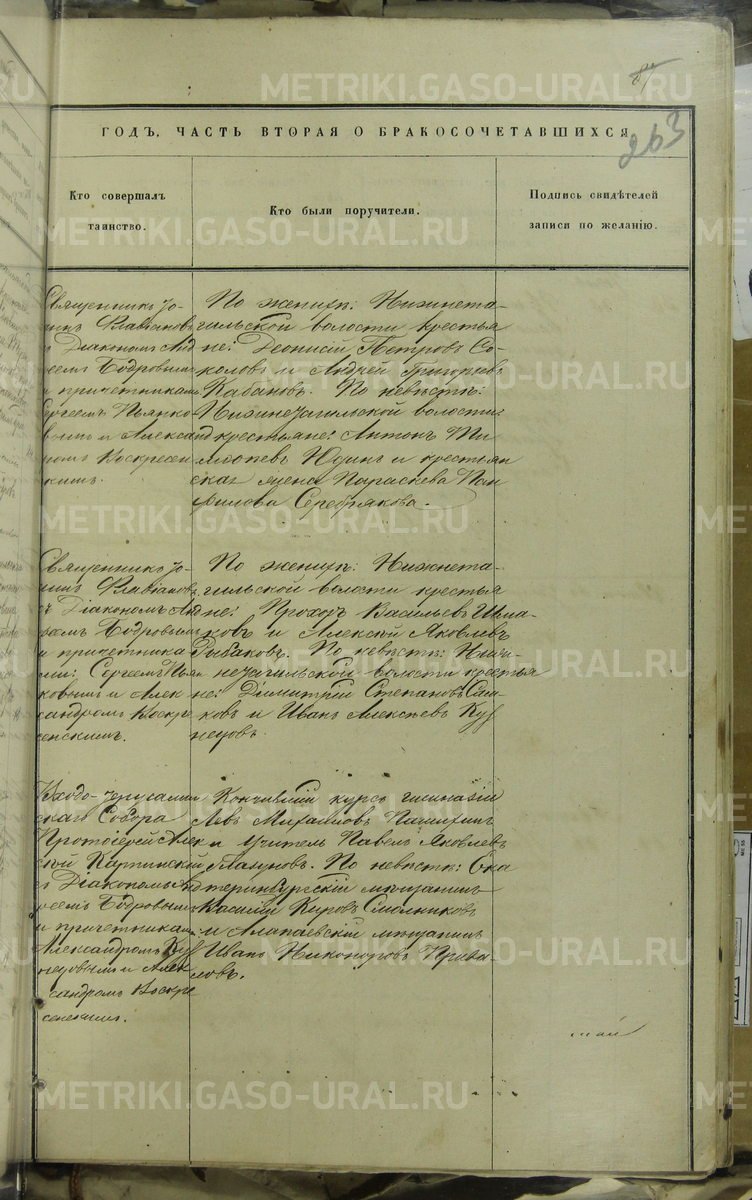 87
263
ГОДЪ, ЧАСТЬ ВТОРАЯ О БРАКОСОЧЕТАВШИХСЯ
Кто совершалъ
таинство.
Кто были поручители.
Подпись свидѣтелей
записи по желанію.
Священникъ Іо-
аннъ Флавіановъ
съ Діакономъ Анд
реемъ Бодровымъ
и причетниками
Сергеемъ Поляко-
вымъ и Алексан
дромъ Воскресен
скимъ.
По женихѣ: Нижнета-
гильской волости крестья
не: Деонисій Петровъ Со-
коловъ и Андрей Григорьевъ
Кабановъ. По невѣстѣ:
Нижнетагильской волости
крестьяне: Антонъ Ти
мофѣевъ Юдинъ и крестьян
ская жена Параскева Пан
филова Серебрякова.
Священникъ Іо-
аннъ Флавіановъ
съ Діакономъ Анд
реемъ Бодровымъ
и причетника
ми: Сергеемъ Поля
ковымъ и Алек
сандромъ Воскре
сенскимъ.
По женихѣ: Нижнета-
гильской волости крестья
не: Прохоръ Васильевъ
и Алексѣй Яковлевъ
Рыбаковъ. По невѣстѣ: Ниж-
нетагильской волости крестья
не: Димитрій Степановъ
и Иванъ Алексѣевъ Куз
нецовъ.
Входо-Іерусалим
скаго Собора
Протоіерей Алек
сѣй Карпинскій
съ Діакономъ Анд
реемъ Бодровымъ
и причетниками
Александромъ Куз
нецовымъ и Алек
сандромъ Воскре
сенскимъ.
Кончившій курсъ гимназіи
Левъ Михаиловъ
и Учитель Павелъ Яковлевъ
Глазуновъ. По невѣстѣ: Ека
теринбургскій мѣщанинъ
Василій Кировъ Смольниковъ
и Алапаевскій мѣщанинъ
Иванъ Никоноровъ Прива-
ловъ.
METRIKI.GASO-URAL.RU